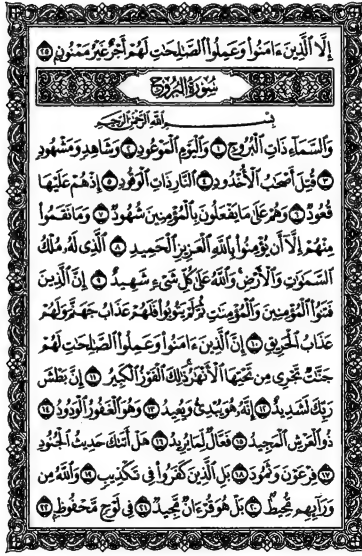 إِلَّا ٱلَّذِينَ ءَامَنُوا۟ وَعَمِلُوا۟ ٱلصَّـٰلِحَـٰتِ لَهُمْ أَجْرٌ غَيْرُ مَمْنُونٍۭ ٢٥
سُورَةُ الْبُرُوجِ
بِسْمِ ٱللَّهِ ٱلرَّحْمَـٰنِ ٱلرَّحِيمِ
وَٱلسَّمَآءِ ذَاتِ ٱلْبُرُوجِ ١ وَٱلْيَوْمِ ٱلْمَوْعُودِ ٢ وَشَاهِدٍ وَمَشْهُودٍ
٣ قُتِلَ أَصْحَـٰبُ ٱلْأُخْدُودِ ٤ ٱلنَّارِ ذَاتِ ٱلْوَقُودِ ٥ إِذْ هُمْ عَلَيْهَا
قُعُودٌ ٦ وَهُمْ عَلَىٰ مَا يَفْعَلُونَ بِٱلْمُؤْمِنِينَ شُهُودٌ ٧ وَمَا نَقَمُوا۟
مِنْهُمْ إِلَّآ أَن يُؤْمِنُوا۟ بِٱللَّهِ ٱلْعَزِيزِ ٱلْحَمِيدِ ٨ ٱلَّذِى لَهُۥ مُلْكُ
ٱلسَّمَـٰوَٰتِ وَٱلْأَرْضِ وَٱللَّهُ عَلَىٰ كُلِّ شَىْءٍ شَهِيدٌ ٩ إِنَّ ٱلَّذِينَ
فَتَنُوا۟ ٱلْمُؤْمِنِينَ وَٱلْمُؤْمِنَـٰتِ ثُمَّ لَمْ يَتُوبُوا۟ فَلَهُمْ عَذَابُ جَهَنَّمَ وَلَهُمْ
عَذَابُ ٱلْحَرِيقِ ١٠ إِنَّ ٱلَّذِينَ ءَامَنُوا۟ وَعَمِلُوا۟ ٱلصَّـٰلِحَـٰتِ لَهُمْ
جَنَّـٰتٌ تَجْرِى مِن تَحْتِهَا ٱلْأَنْهَـٰرُ ذَٰلِكَ ٱلْفَوْزُ ٱلْكَبِيرُ ١١ إِنَّ بَطْشَ
رَبِّكَ لَشَدِيدٌ ١٢ إِنَّهُۥ هُوَ يُبْدِئُ وَيُعِيدُ ١٣ وَهُوَ ٱلْغَفُورُ ٱلْوَدُودُ ١٤
ذُو ٱلْعَرْشِ ٱلْمَجِيدُ ١٥ فَعَّالٌ لِّمَا يُرِيدُ ١٦ هَلْ أَتَىٰكَ حَدِيثُ ٱلْجُنُودِ
١٧ فِرْعَوْنَ وَثَمُودَ ١٨ بَلِ ٱلَّذِينَ كَفَرُوا۟ فِى تَكْذِيبٍ ١٩ وَٱللَّهُ مِن
وَرَآئِهِم مُّحِيطٌۢ ٢٠ بَلْ هُوَ قُرْءَانٌ مَّجِيدٌ ٢١ فِى لَوْحٍ مَّحْفُوظٍۭ ٢٢